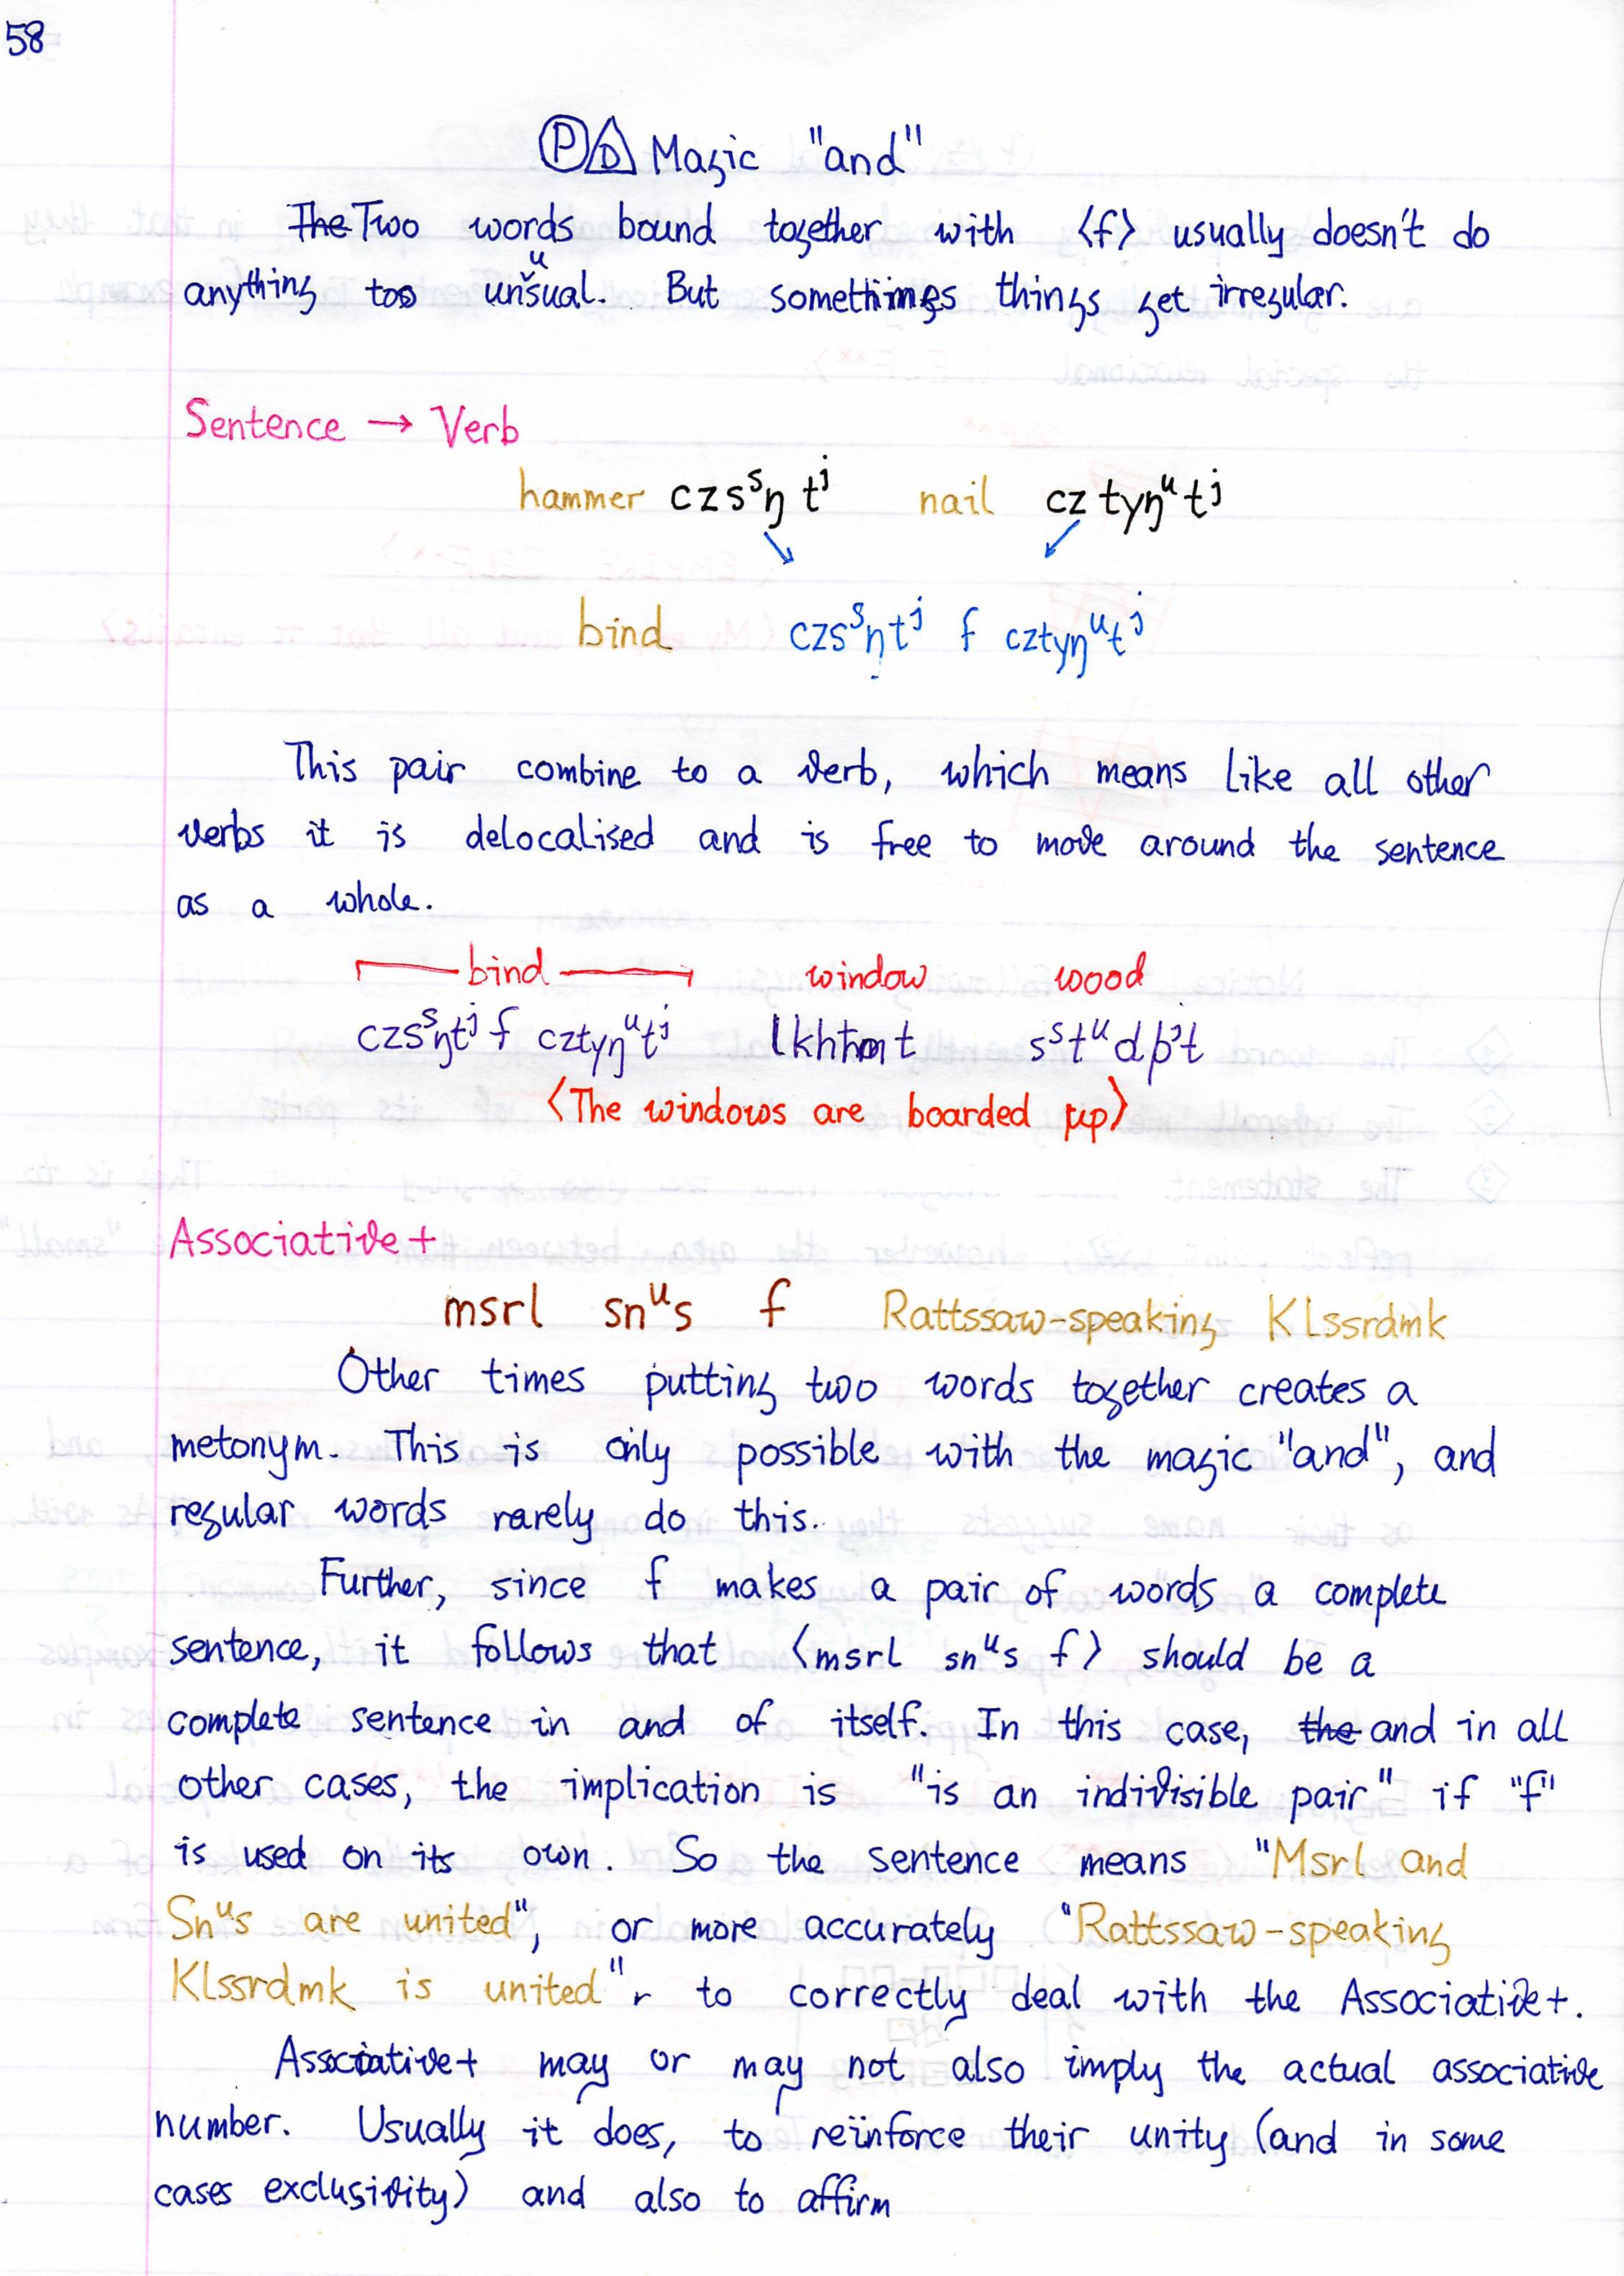 58
Ⓟ D Magic "and"
The Two words bound together with ⟨f⟩ usually doesn't do
anything too unusual. But sometimes things get irregular.
Sentence → Verb
hammer czsˢŋ tʲ nail cz tyŋᵘtʲ
bind czsˢŋtʲ f cztyŋᵘtʲ
This pair combine to a verb, which means like all other
verbs it is delocalised and is free to move around the sentence
as a whole.
bind window wood
czsˢŋtʲ f cztyŋᵘtʲ sˢtᵘdþʲt
⟨The windows are boarded up⟩
Associative+
msrl snᵘs f Rattssaw-speaking Klssrdmk
Other times putting two words together creates a
metonym. This is only possible with the magic "and", and
regular words rarely do this.
Further, since f makes a pair of words a complete
sentence, it follows that ⟨msrl snᵘs f⟩ should be a
complete sentence in and of itself. In this case, the and in all
other cases, the implication is "is an indivisible pair" if "f"
is used on its own. So the sentence means "Msrl and
Snᵘs are united", or more accurately "Rattssaw-speaking
Klssrdmk is united", to correctly deal with the Associative+.
Associative+ may or may not also imply the actual associative
number. Usually it does, to reïnforce their unity (and in some
cases exclusivity) and also to affirm